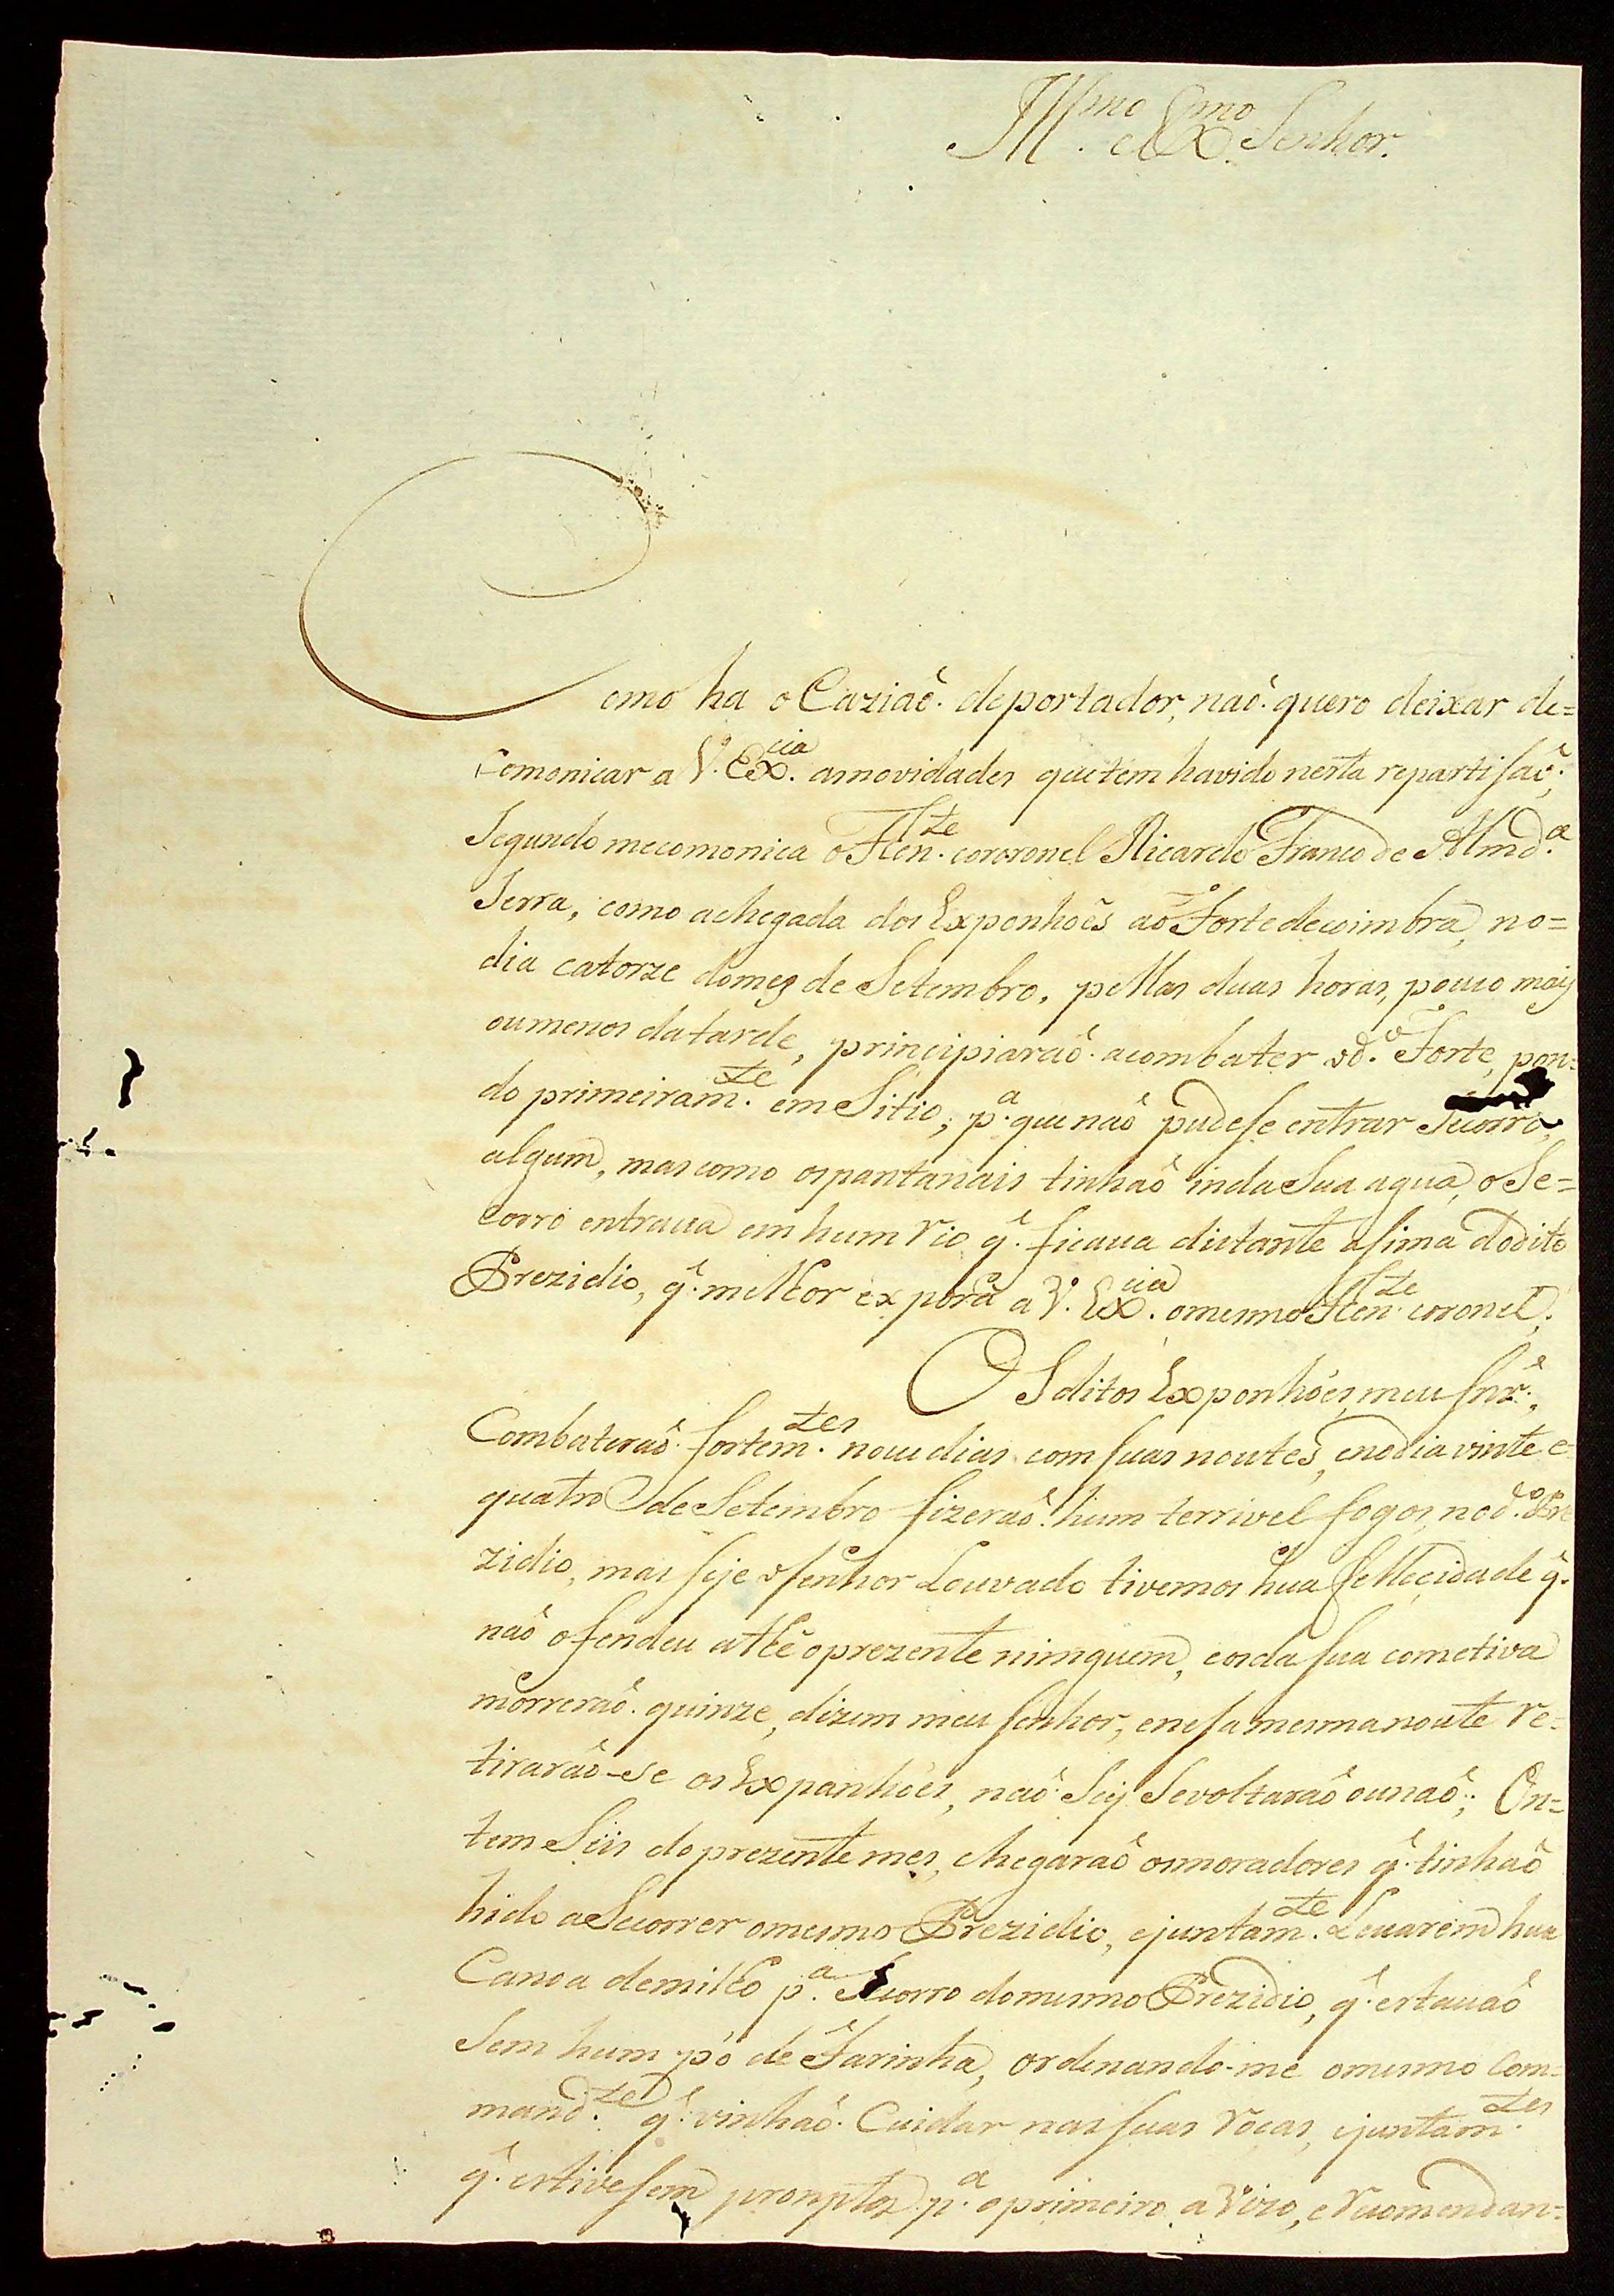 Ill.mo e Ex.mo Senhor.
Como ha o Caziaõ. de portador, naõ. quero deixar de=
comonicar a V. Ex.cia as novidades que tem havido nesta repartisaõ;
Segundo me comonica o Then.te cororonel Ricardo Franco de Almd.a
Serra, como a chegada dos Exponhoẽs ao Forte de coimbra, no=
dia catorze do mez de Setembro, pellas duas horas, pouco mais
ou menos da tarde, principiaraõ. a combater o d.o Forte, pon=
do primeiram.te em Sitio; p.a que naõ pudese entrar Secorro
algum, mas como os pantanais tinhaõ inda Sua agua, o Se=
corro entraua em hum rio q̃. ficaua distante asima do dito
Prezidio, q̃. milhor exporá a V. Ex.cia o mesmo Then.te coronel;
OS ditos Exponhoẽs, meu Snr.,
Combateraõ. fortem.tes noue dias com suas noutes, e no dia vinte e=
quatro de Setembro fizeraõ. hum terrivel fogos, no d.o Pre
zidio, mas seje o senhor Louvado tivemos hũa fellecidade q̃.
naõ ofendeu athe o prezente nimguem, e os da sua cometiva
morreraõ. quinze, dizem meu senhor, e nesa mesma noute re=
tiraraõ-se os Expanhoẽs, naõ. Sey Se voltaraõ ou naõ; On=
tem Seis do prezente mes, chegaraõ os moradores q̃. tinhaõ
hido a Secorrer o mesmo Prezidio, e juntam.te Leuarem hua
Canoa de milho p.a Secorro do mesmo Prezidio, q̃. estauaõ
Sem hum pó de Farinha, ordenando-me o mesmo Com=
mand.te q̃. vinhaõ. Cuidar nas suas roças, e juntam.tes
q̃. estivesem promptos p.a o primeiro a vizo, e recomendan=